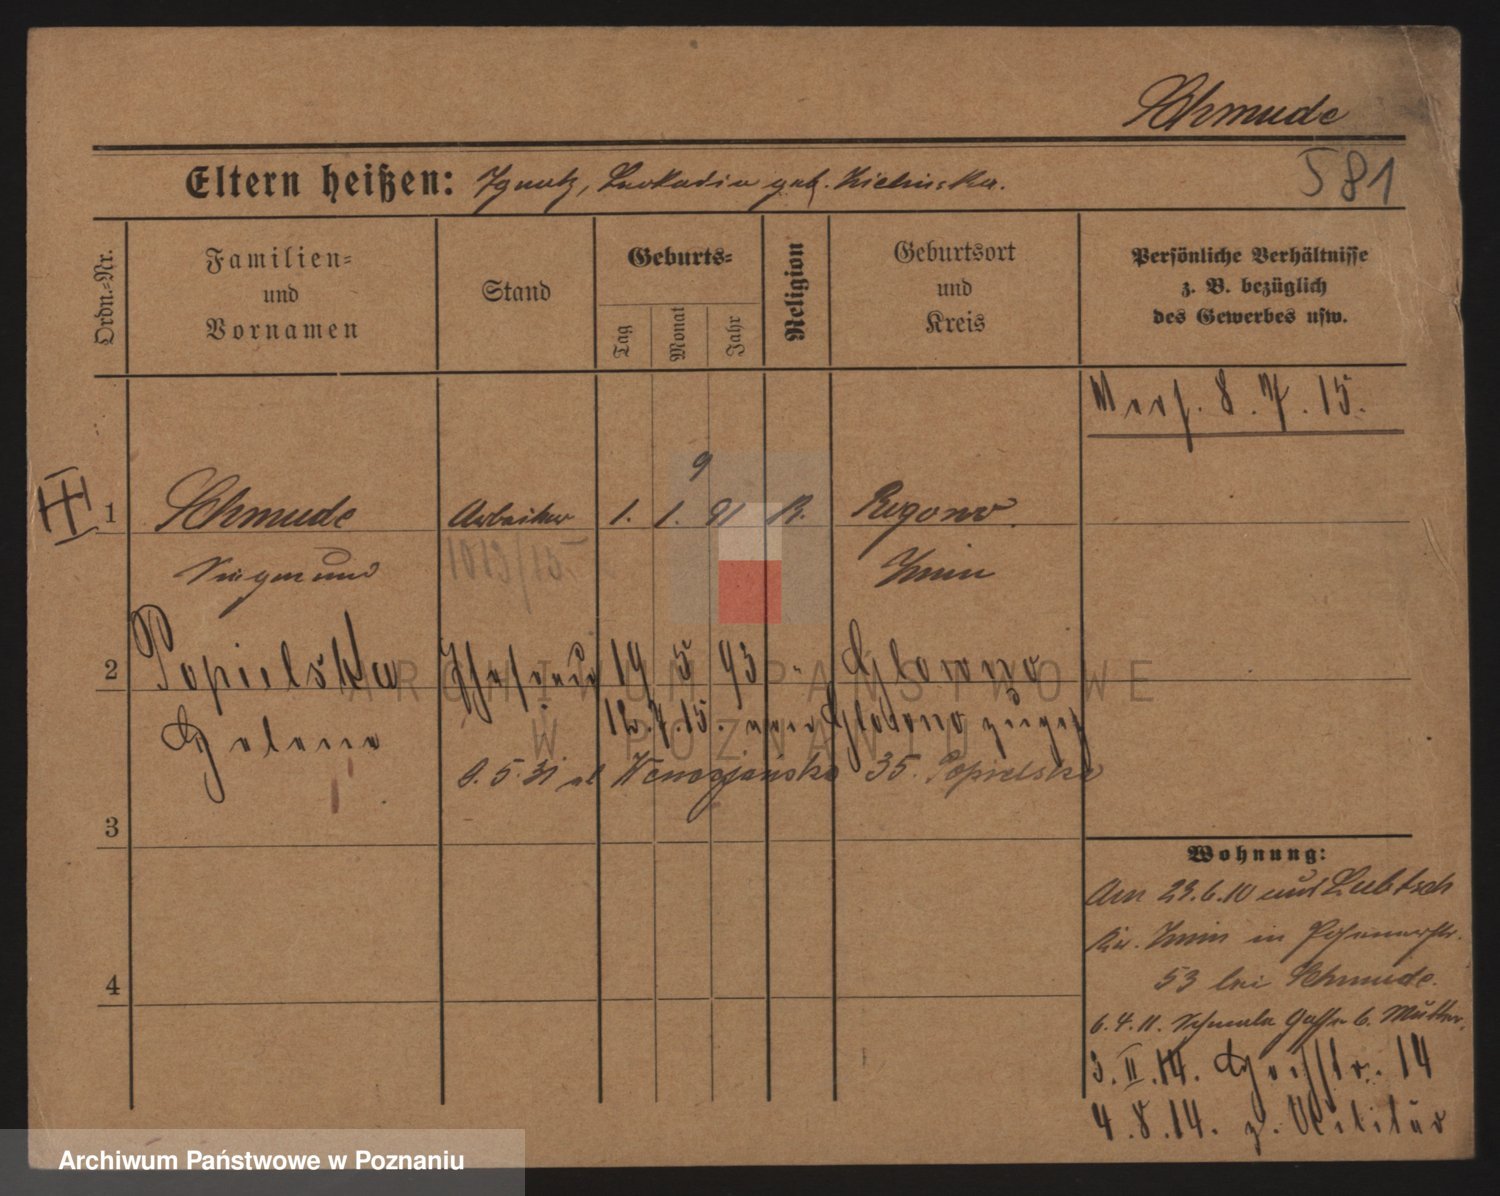 Schmude
581
Eltern heißen: Ignatz, Leokadia geb. Zielinska.
Ordn.=Nr.
Familien= und Vornamen
Stand
Geburts=
Tag
Monat
Jahr
Religion
Geburtsort und Kreis
Persönliche Verhältnisse z. B. bezüglich des Gewerbes usw.
8. 7. 15.
9
1 Schmude Arbeiter 1. 1. 91 K. Rogowo
Siegmund 1019/15 Znin
2 Popielska Ehefrau 19 5 93 " Glowno
Helene 12.7.15. von Glowno zugez
9. 5. 31 ul Wenecjańska 35. Popielska
3
4
Wohnung:
Am 23.6.10 aus Liebtsch
Kr. Znin in Posenerstr.
53 bei Schmude.
6. 4. 11. Schmale Gasse b. Mutter.
3. II. 14. 14
4. 8. 14. z. Militär
ARCHIWUM PAŃSTWOWE
W POZNANIU
Archiwum Państwowe w Poznaniu